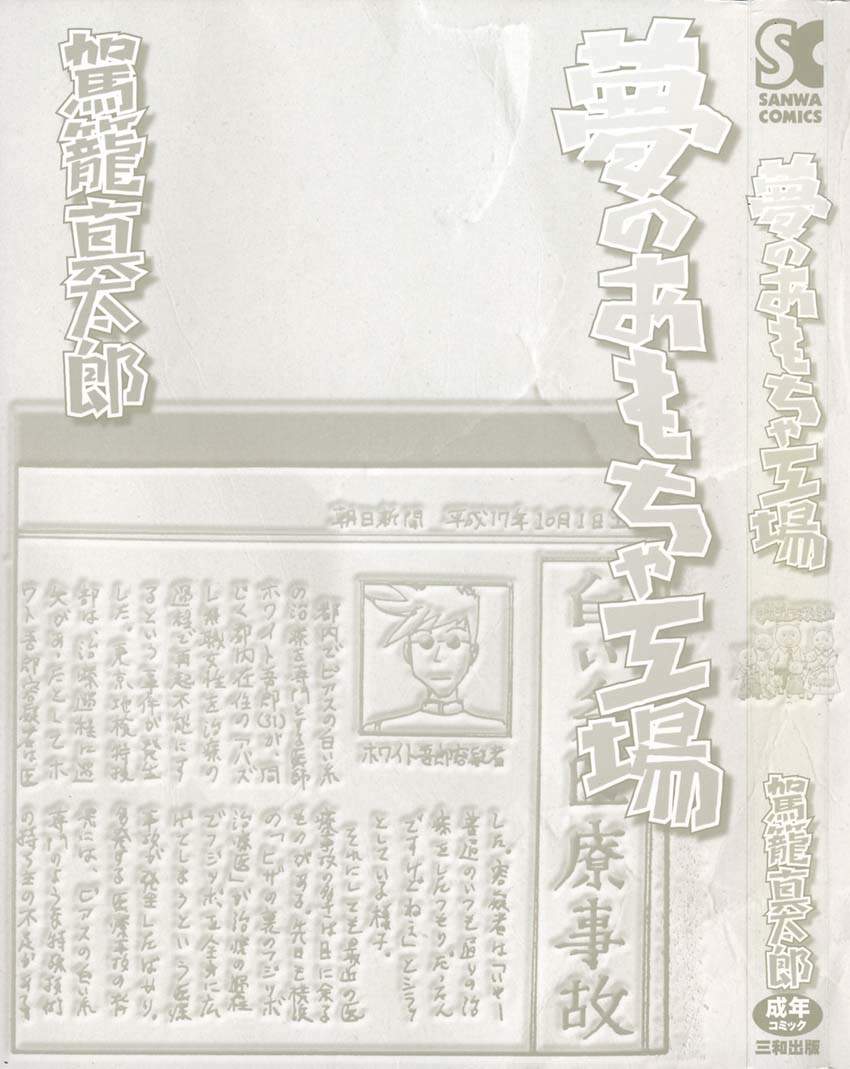 駕籠真太郎
夢のおもちゃ工場
SC
SANWA
COMICS
夢のおもちゃ工場
駕籠真太郎
成年
コミック
三和出版
朝日新聞 平成17年10月1日
白い糸医療事故
ホワイト吾郎容疑者
都内でピアスの白い糸
の治療を専門とする医師
ホワイト吾郎(31)が、同
じく都内在住のアパズ
し無職女性を治療の
過程で再起不能にす
るという事件が発生
した。東京地検特捜
部は、治療過程に過
失があったとしてホ
ワイト吾郎容疑者は医
した。容疑者は「いやー
普通のいつも通りの治
療をしたつもりだったん
ですけどねえ」とシラッ
としている様子。
それにしても最近の医
療事故の多さは目に余る
ものがある。先日も横浜
の「ヒザの裏のフジツボ
治療医」が治療の過程
でフジツボ、五全身に広
げてしまうという医療
事故が発生したばかり。
多発する医療事故の背
景には、ピアスの白い糸
専門のような特殊技術
の持ち主の不足がある